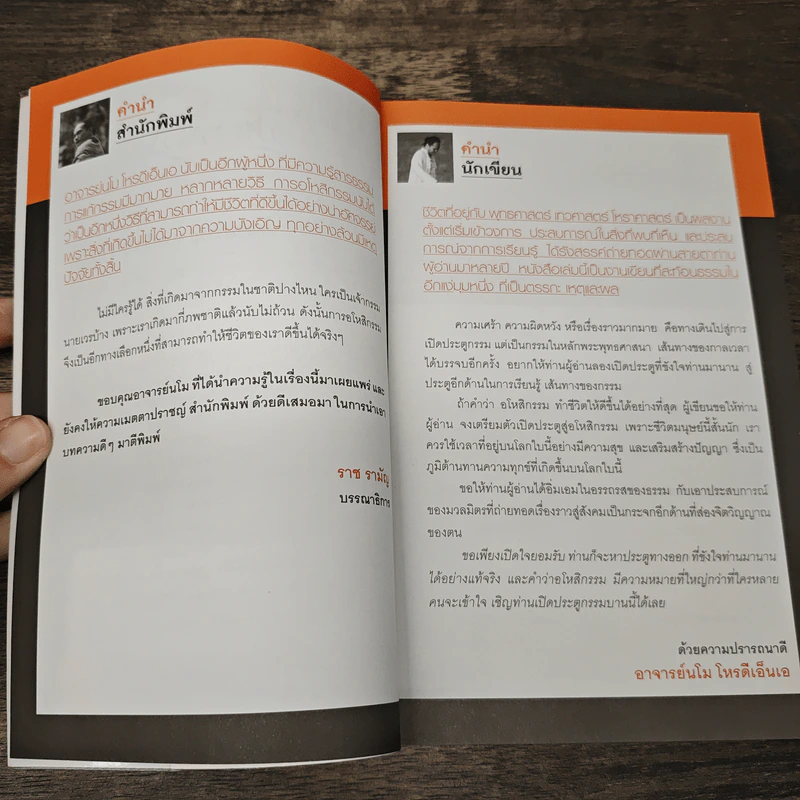 คำนำ
สำนักพิมพ์
อาจารย์นโม โหรดีเอ็นเอ นับเป็นอีกผู้หนึ่ง ที่มีความรู้สารธรรม
การแก้กรรมมีมากมาย หลากหลายวิธี การอโหสิกรรมนับได้
ว่าเป็นอีกหนึ่งวิธีที่สามารถทำให้มีชีวิตที่ดีขึ้นได้อย่างน่าอัศจรรย์
เพราะสิ่งที่เกิดขึ้นไม่ได้มาจากความบังเอิญ ทุกอย่างล้วนมีเหตุ
ปัจจัยทั้งสิ้น
ไม่มีใครรู้ได้ สิ่งที่เกิดมาจากกรรมในชาติปางไหน ใครเป็นเจ้ากรรม
นายเวรบ้าง เพราะเราเกิดมากี่ภพชาติแล้วนับไม่ถ้วน ดังนั้นการอโหสิกรรม
จึงเป็นอีกทางเลือกหนึ่งที่สามารถทำให้ชีวิตของเราดีขึ้นได้จริงๆ
ขอบคุณอาจารย์นโม ที่ได้นำความรู้ในเรื่องนี้มาเผยแพร่ และ
ยังคงให้ความเมตตาปราชญ์ สำนักพิมพ์ ด้วยดีเสมอมา ในการนำเอา
บทความดีๆ มาตีพิมพ์
ราช รามัญ
บรรณาธิการ
คำนำ
นักเขียน
ชีวิตที่อยู่กับ พุทธศาสตร์ เทวศาสตร์ โหราศาสตร์ เป็นผลงาน
ตั้งแต่เริ่มเข้าวงการ ประสบการณ์ในสิ่งที่พบที่เห็น และประสบ
การณ์จากการเรียนรู้ ได้รังสรรค์ถ่ายทอดผ่านสายตาท่าน
ผู้อ่านมาหลายปี หนังสือเล่มนี้เป็นงานเขียนที่สะท้อนธรรมใน
อีกแง่มุมหนึ่ง ที่เป็นตรรกะ เหตุและผล
ความเศร้า ความผิดหวัง หรือเรื่องราวมากมาย คือทางเดินไปสู่การ
เปิดประตูกรรม แต่เป็นกรรมในหลักพระพุทธศาสนา เส้นทางของกาลเวลา
ได้บรรจบอีกครั้ง อยากให้ท่านผู้อ่านลองเปิดประตูที่ขังใจท่านมานาน สู่
ประตูอีกด้านในการเรียนรู้ เส้นทางของกรรม
ถ้าคำว่า อโหสิกรรม ทำชีวิตให้ดีขึ้นได้อย่างที่สุด ผู้เขียนขอให้ท่าน
ผู้อ่าน จงเตรียมตัวเปิดประตูสู่อโหสิกรรม เพราะชีวิตมนุษย์นี้สั้นนัก เรา
ควรใช้เวลาที่อยู่บนโลกใบนี้อย่างมีความสุข และเสริมสร้างปัญญา ซึ่งเป็น
ภูมิต้านทานความทุกข์ที่เกิดขึ้นบนโลกใบนี้
ขอให้ท่านผู้อ่านได้อิ่มเอมในอรรถรสของธรรม กับเอาประสบการณ์
ของมวลมิตรที่ถ่ายทอดเรื่องราวสู่สังคมเป็นกระจกอีกด้านที่ส่องจิตวิญญาณ
ของตน
ขอเพียงเปิดใจยอมรับ ท่านก็จะหาประตูทางออก ที่ขังใจท่านมานาน
ได้อย่างแท้จริง และคำว่าอโหสิกรรม มีความหมายที่ใหญ่กว่าที่ใครหลาย
คนจะเข้าใจ เชิญท่านเปิดประตูกรรมบานนี้ได้เลย
ด้วยความปรารถนาดี
อาจารย์นโม โหรดีเอ็นเอ